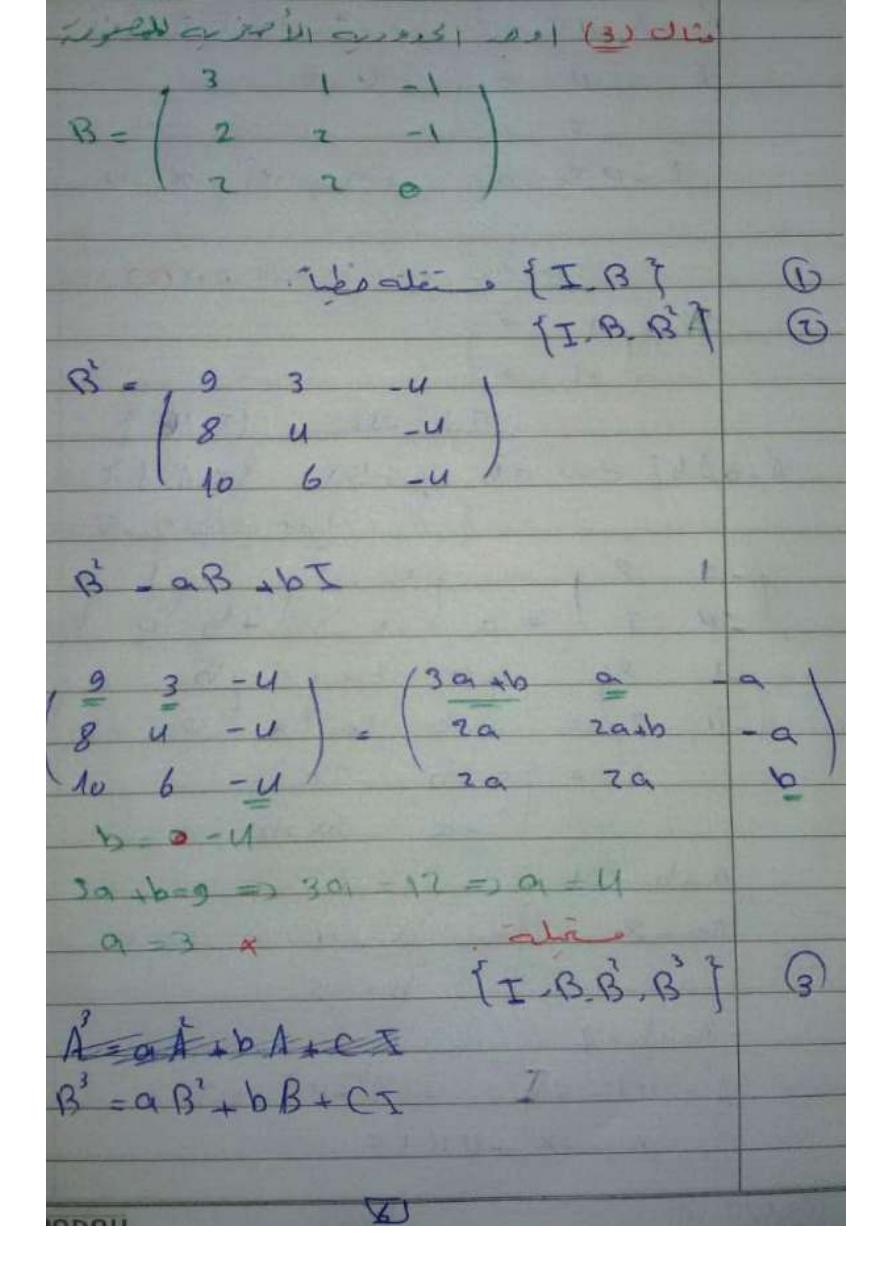 مثال (3) اوجد الحدودية الأصغرية للمصفوفة
B = ( 3 1 -1
2 2 -1
2 2 0 )
① {I, B} مستقلة خطياً
② {I, B, B²}
B² = ( 9 3 -4
8 4 -4
10 6 -4 )
B² = aB + bI
( 9 3 -4 ) = ( 3a+b a -a )
( 8 4 -4 ) = ( 2a 2a+b -a )
( 10 6 -4 ) = ( 2a 2a b )
b = -4
3a+b=9 => 3a = 12 => a = 4
a = 3 × مستقلة
③ {I, B, B², B³}
A³ = aA² + bA + cI
B³ = aB² + bB + CI
I